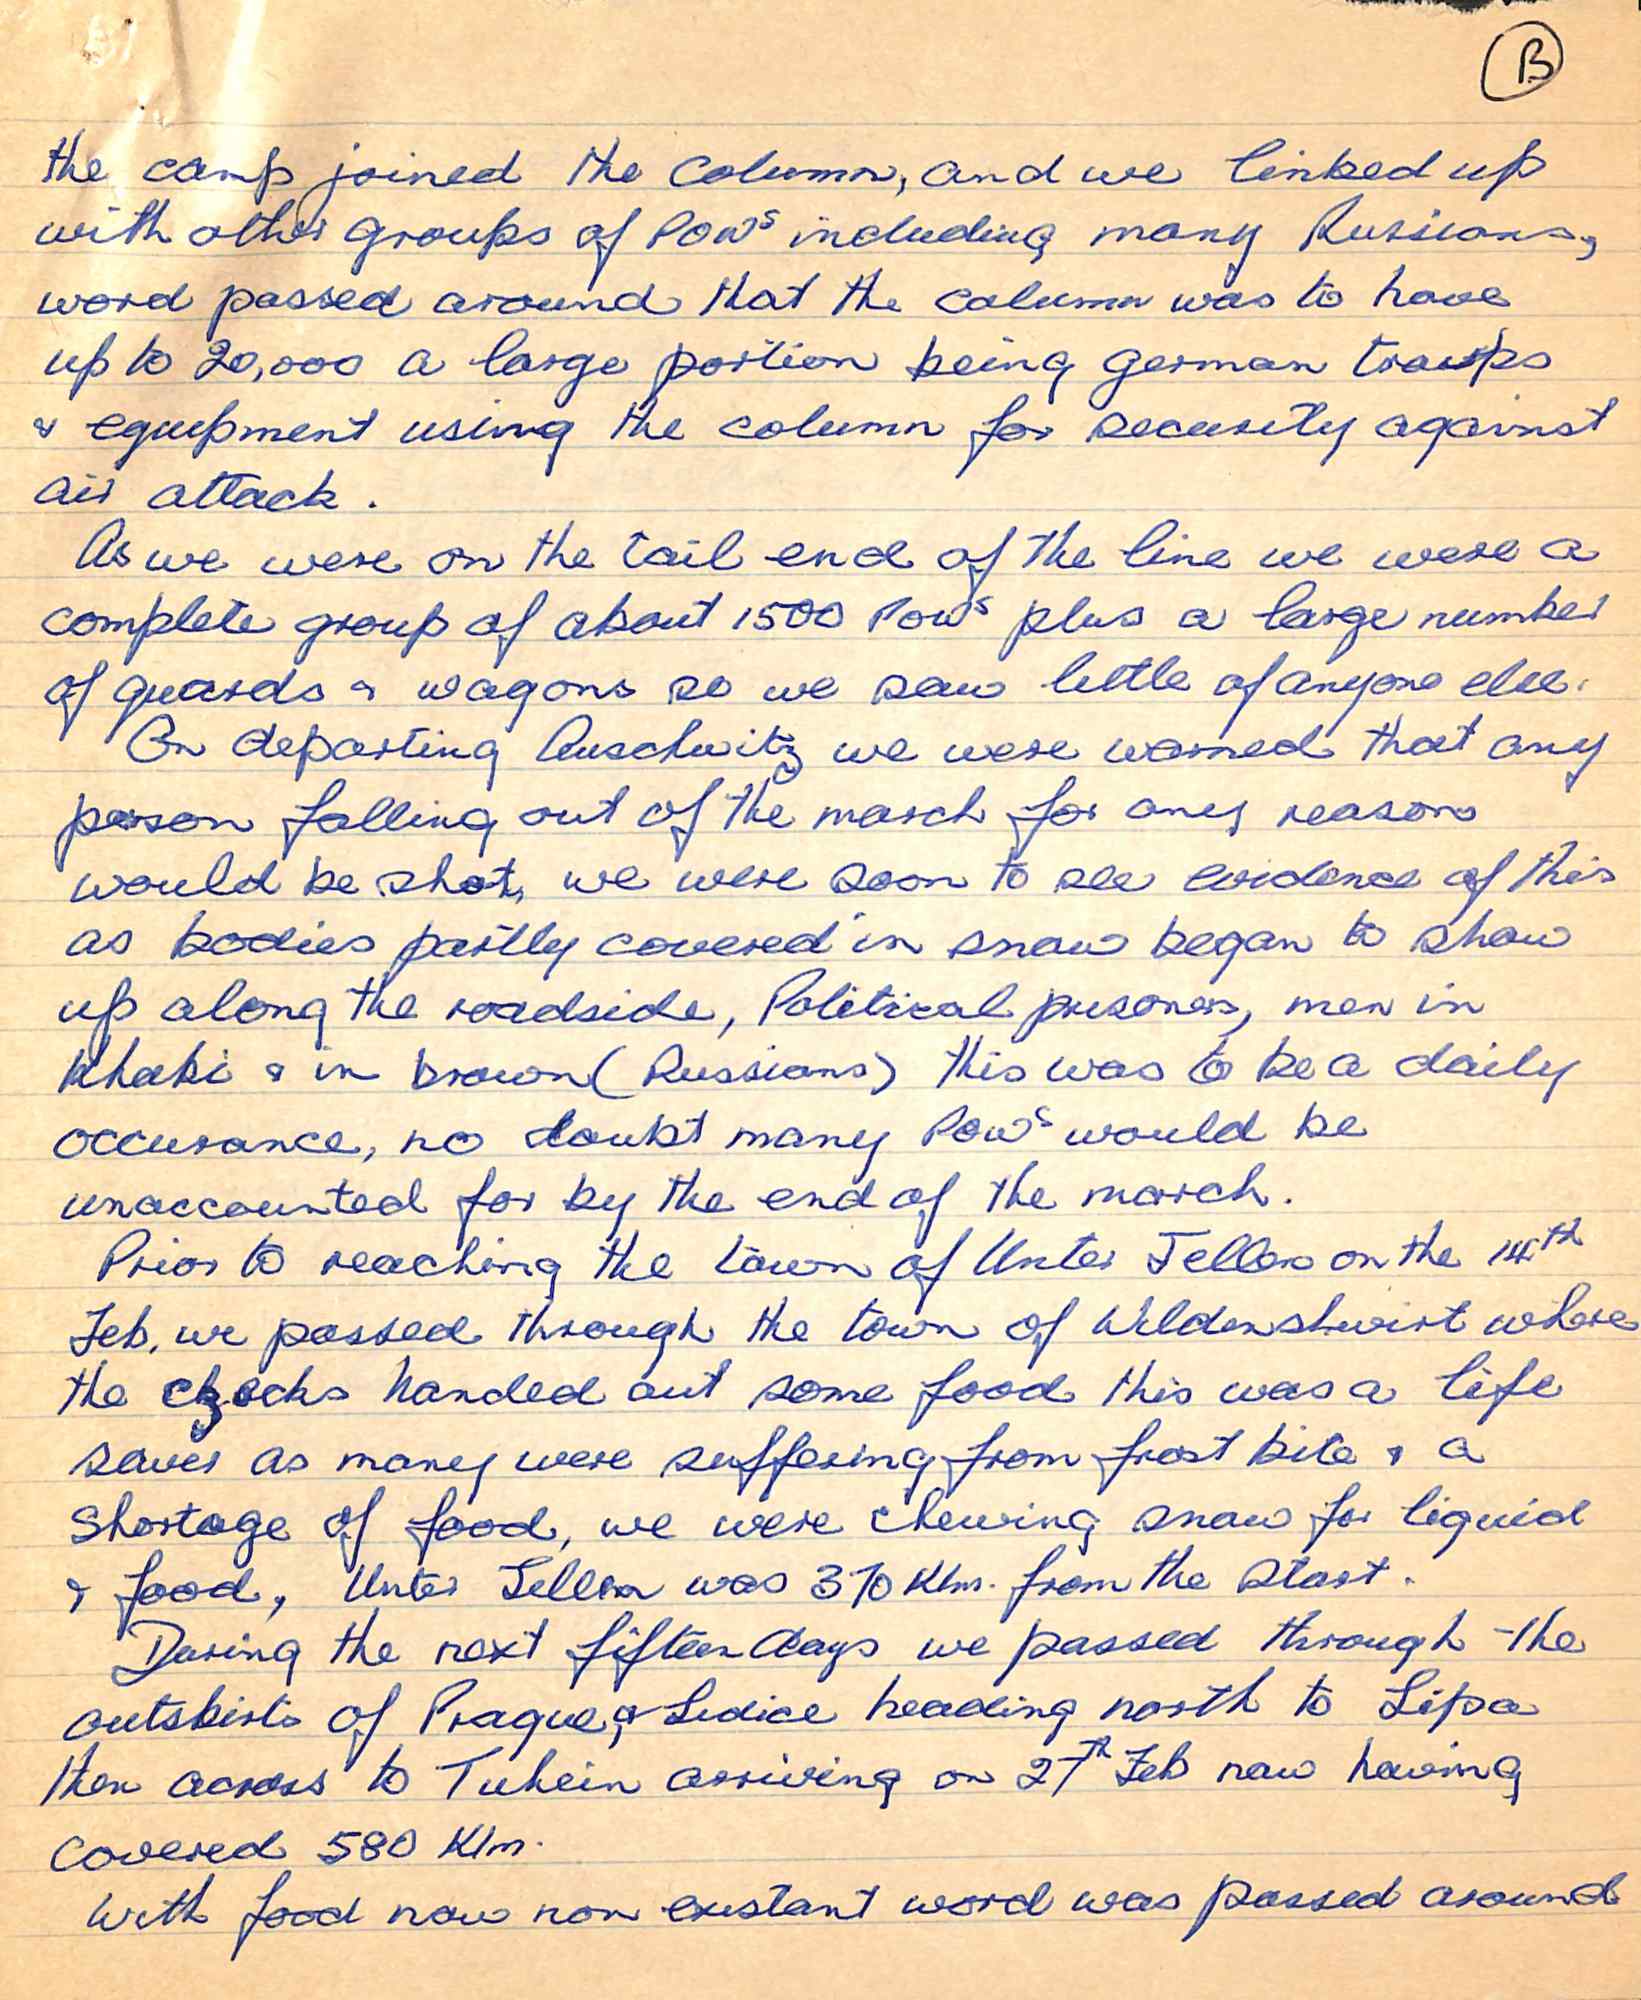 B
the camp joined the column, and we linked up
with other groups of POWs including many Russians,
word passed around that the column was to have
up to 20,000 a large portion being german troups
& equipment using the column for security against
air attack.
As we were on the tail end of the line we were a
complete group of about 1500 POWs plus a large number
of guards & wagons so we saw little of anyone else.
On departing Auschwitz we were warned that any
person falling out of the march for any reason
would be shot, we were soon to see evidence of this
as bodies partly covered in snow began to show
up along the roadside, Political prisoners, men in
khaki & in brown (Russians) this was to be a daily
occurance, no doubt many POWs would be
unaccounted for by the end of the march.
Prior to reaching the town of Unter Tellen on the 14th
Feb. we passed through the town of Wildenshwirt where
the czechs handed out some food this was a life
saver as many were suffering from frost bite & a
shortage of food, we were chewing snow for liquid
& food, Unter Tellen was 370 Klm. from the start.
During the next fifteen days we passed through the
outskirts of Prague & Ledice heading north to Lipa
then across to Tuhein arriving on 27th Feb now having
covered 580 Klm.
With food now non existant word was passed around